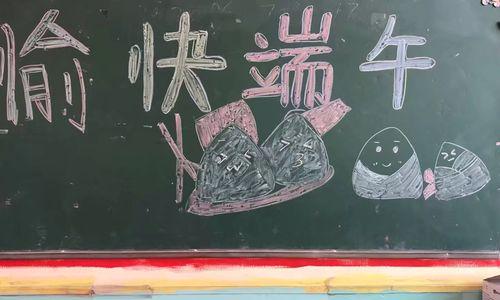 愉快端午